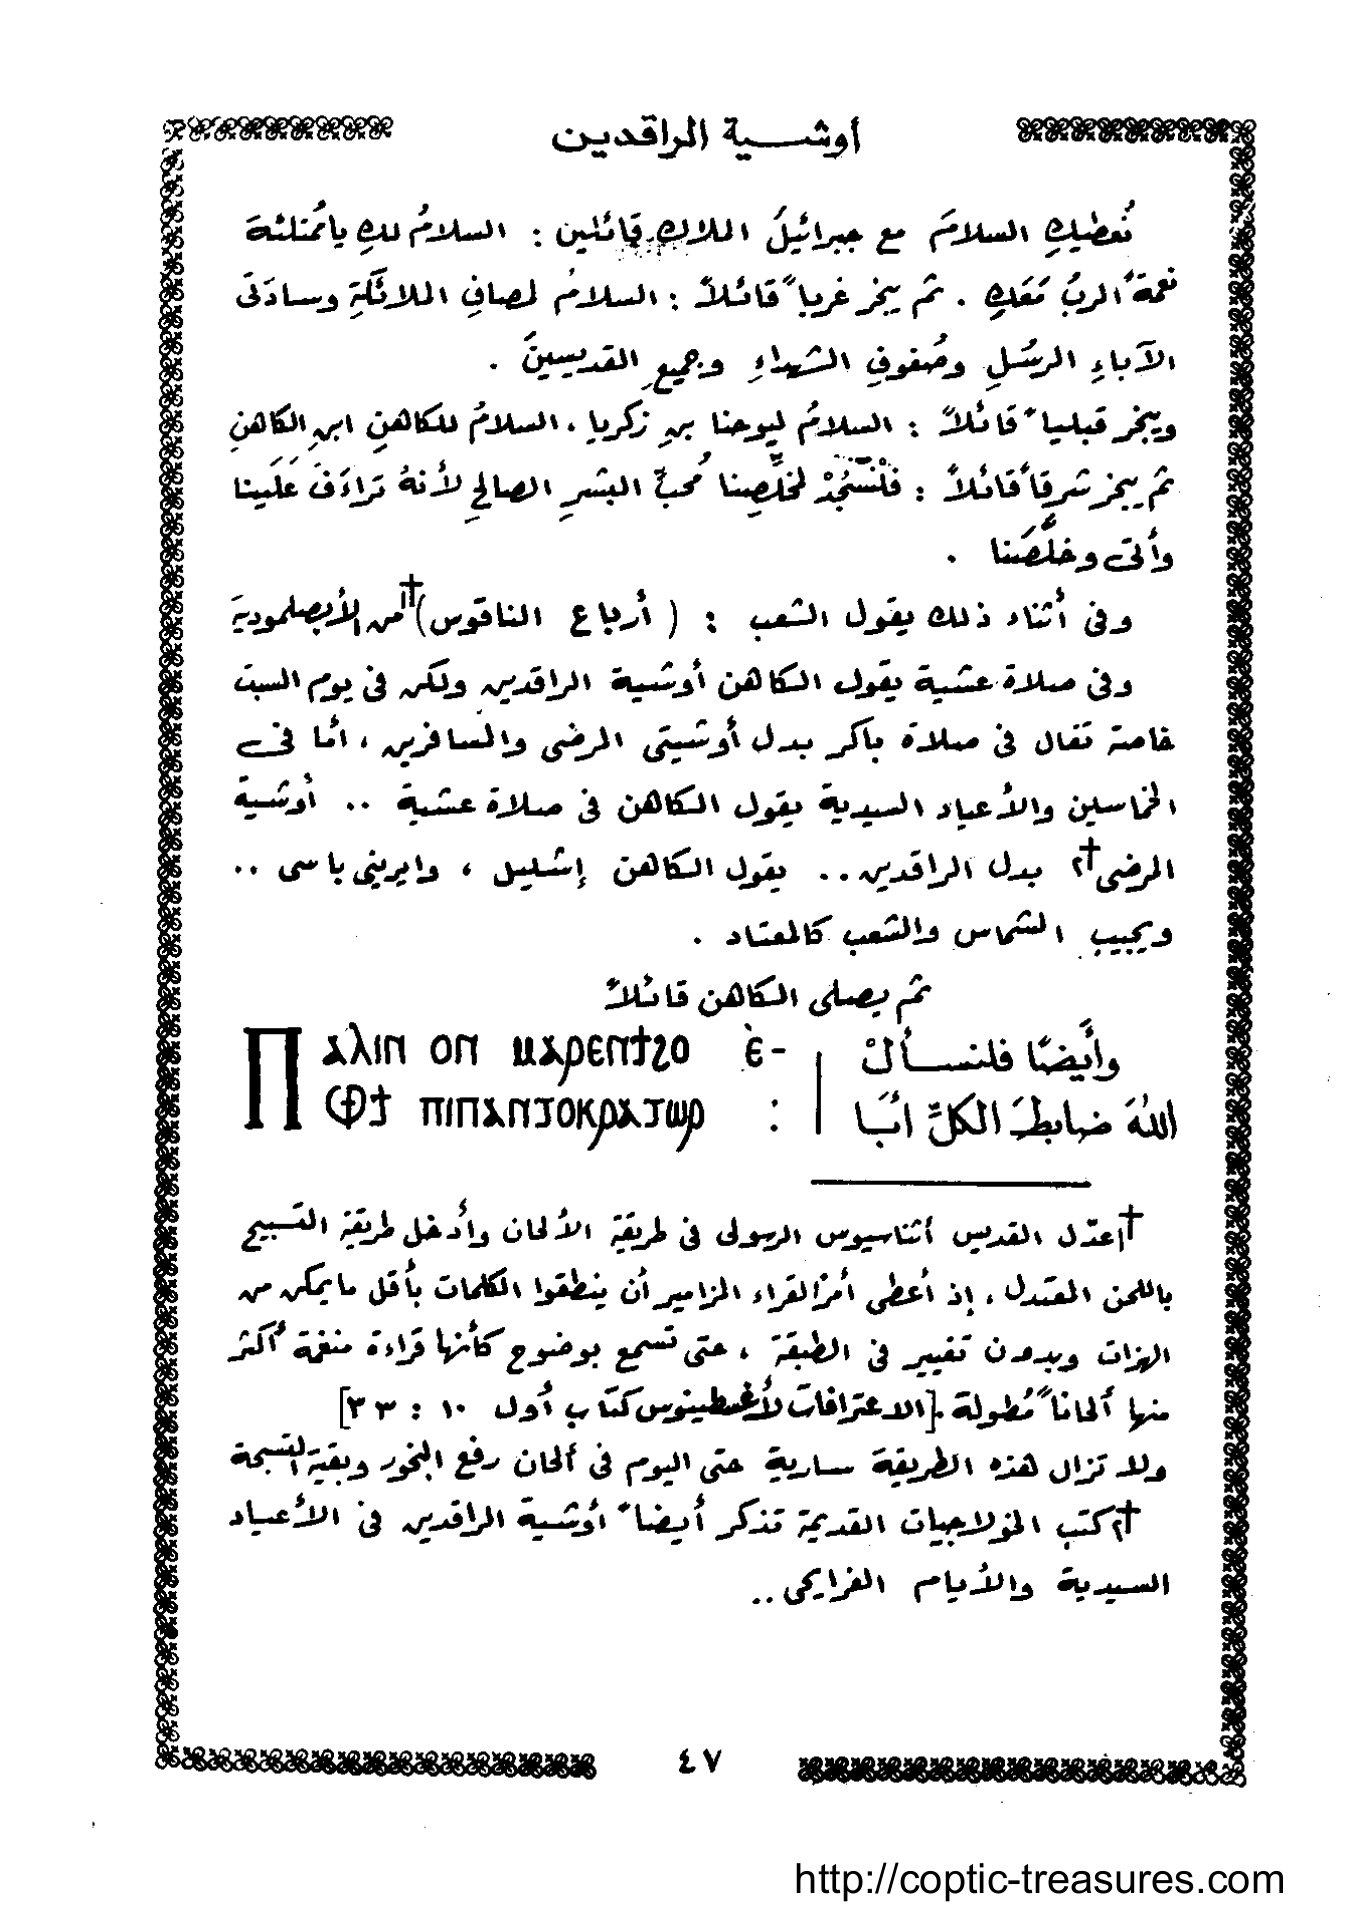 أوشـــية الراقدين
نُعطيكِ السلامَ مع جبرائيلُ الملاكِ قائلين : السلامُ لكِ ياممُتلئةَ
نعمةً الربُ مَعَكِ . ثم يبخر غربياً قائلاً : السلامُ لمصافِ الملائكةِ وسادَتى
الآباءِ الرسُلِ وصُفوفِ الشهداءِ وجميعِ القديسينَ .
ويبخر قبلياً قائلاً : السلامُ ليوحنا بن زكريا ، السلامُ للكاهنِ ابنِ الكاهنِ
ثم يبخر شرقاً قائلاً : فلْنَسْجُدْ لمخلِّصِنا مُحبِّ البشرِ الصالحِ لأنهُ تراءَفَ عَلَينا
وأتى وخلَّصَنا .
وفى أثناء ذلك يقول الشعب : ( أرباع الناقوس)†١ من الأبصلمودية
وفى صلاة عشية يقول الكاهن أوشية الراقدين ولكن فى يوم السبت
خاصة تقال فى صلاة باكر بدل أوشيتى المرضى والمسافرين ، أما فى
الخماسين والأعياد السيدية يقول الكاهن فى صلاة عشية .. أوشية
المرضى†٢ بدل الراقدين .. يقول الكاهن إشليل ، وايرينى باسى ..
ويجيب الشماس والشعب كالمعتاد .
ثم يصلى الكاهن قائلاً
Ⲡⲁⲗⲓⲛ ⲟⲛ ⲙⲁⲣⲉⲛϯϩⲟ ⲉ̀-
Ⲫϯ ⲡⲓⲡⲁⲛⲧⲟⲕⲣⲁⲧⲱⲣ :
وأَيضًا فلنســألْ
اللهَ ضابطَ الكلِّ أبَا
†١ عدّل القديس أثناسيوس الرسولى فى طريقة الألحان وأدخل طريقة التسبيح
باللحن المعتدل ، إذ أعطى أمرًا لقراء المزامير أن ينطقوا الكلمات بأقل مايمكن من
الهزات وبدون تغيير فى الطبقة ، حتى تسمع بوضوح كأنها قراءة منغمة أكثر
منها ألحاناً مُطولة .[الاعترافات لأغسطينوس كتاب أول ١٠ : ٣٣]
ولا تزال هذه الطريقة سارية حتى اليوم فى ألحان رفع البخور وبقية التسبحة
†٢ كتب الخولاجيات القديمة تذكر أيضاً أوشية الراقدين فى الأعياد
السيدية والأيام الفرايحى ..
٤٧
http://coptic-treasures.com